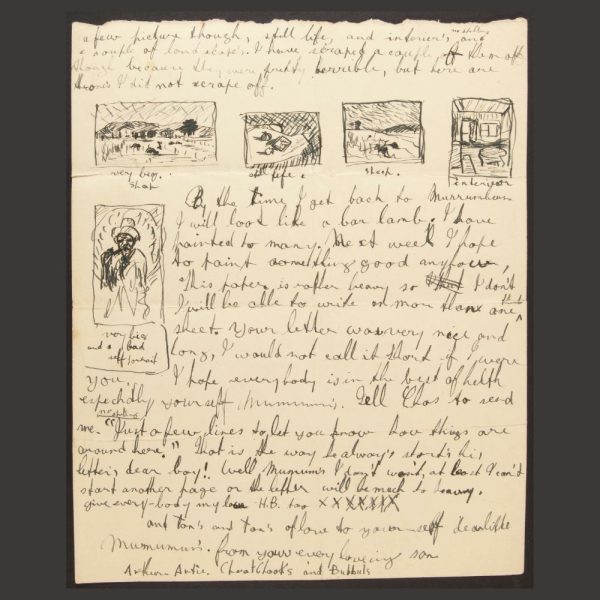 a few picture though, still life, and interior's and
no spelling
a couple of landscape's. I have scraped a couple of them off
because they were pretty terrible, but here are
I did not scrape off.
very big.
sheep
still life.
sheep.
interior
By the time I get back to Murrumbeena
I will look like a bar lamb. I have
painted so many. Next week I hope
to paint something good anyhow,
This paper is rather heavy so I don't
I will be able to write on more than one
sheet. Your letter was very nice and
long, I would not call it short if I were
very big
and a bad
self portrait
you. I hope everybody is in the best of helth
especially yourself, Mumumum's. Tell Chas to send
no spelling
me. "Just a few lines to let you know how things are
around here." That is the way he always start's his
letter's, dear boy! Well Mumum's I don't won't, at least I can't
start another page or the letter will be much to heavy.
give every-body my love H.B. too XXXXXXX
and ton's and ton's of love to your self dear
Mumumum's. from your ever loving son
Arthur Artie. and